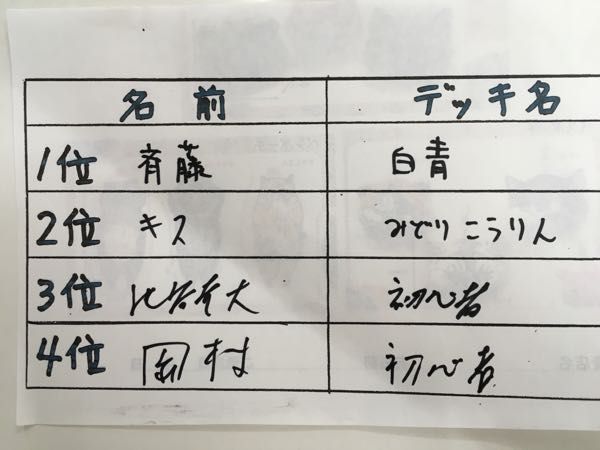 名前 デッキ名
1位 斉藤 白青
2位 キス みどりこうりん
3位 大 初心者
4位 村 初心者